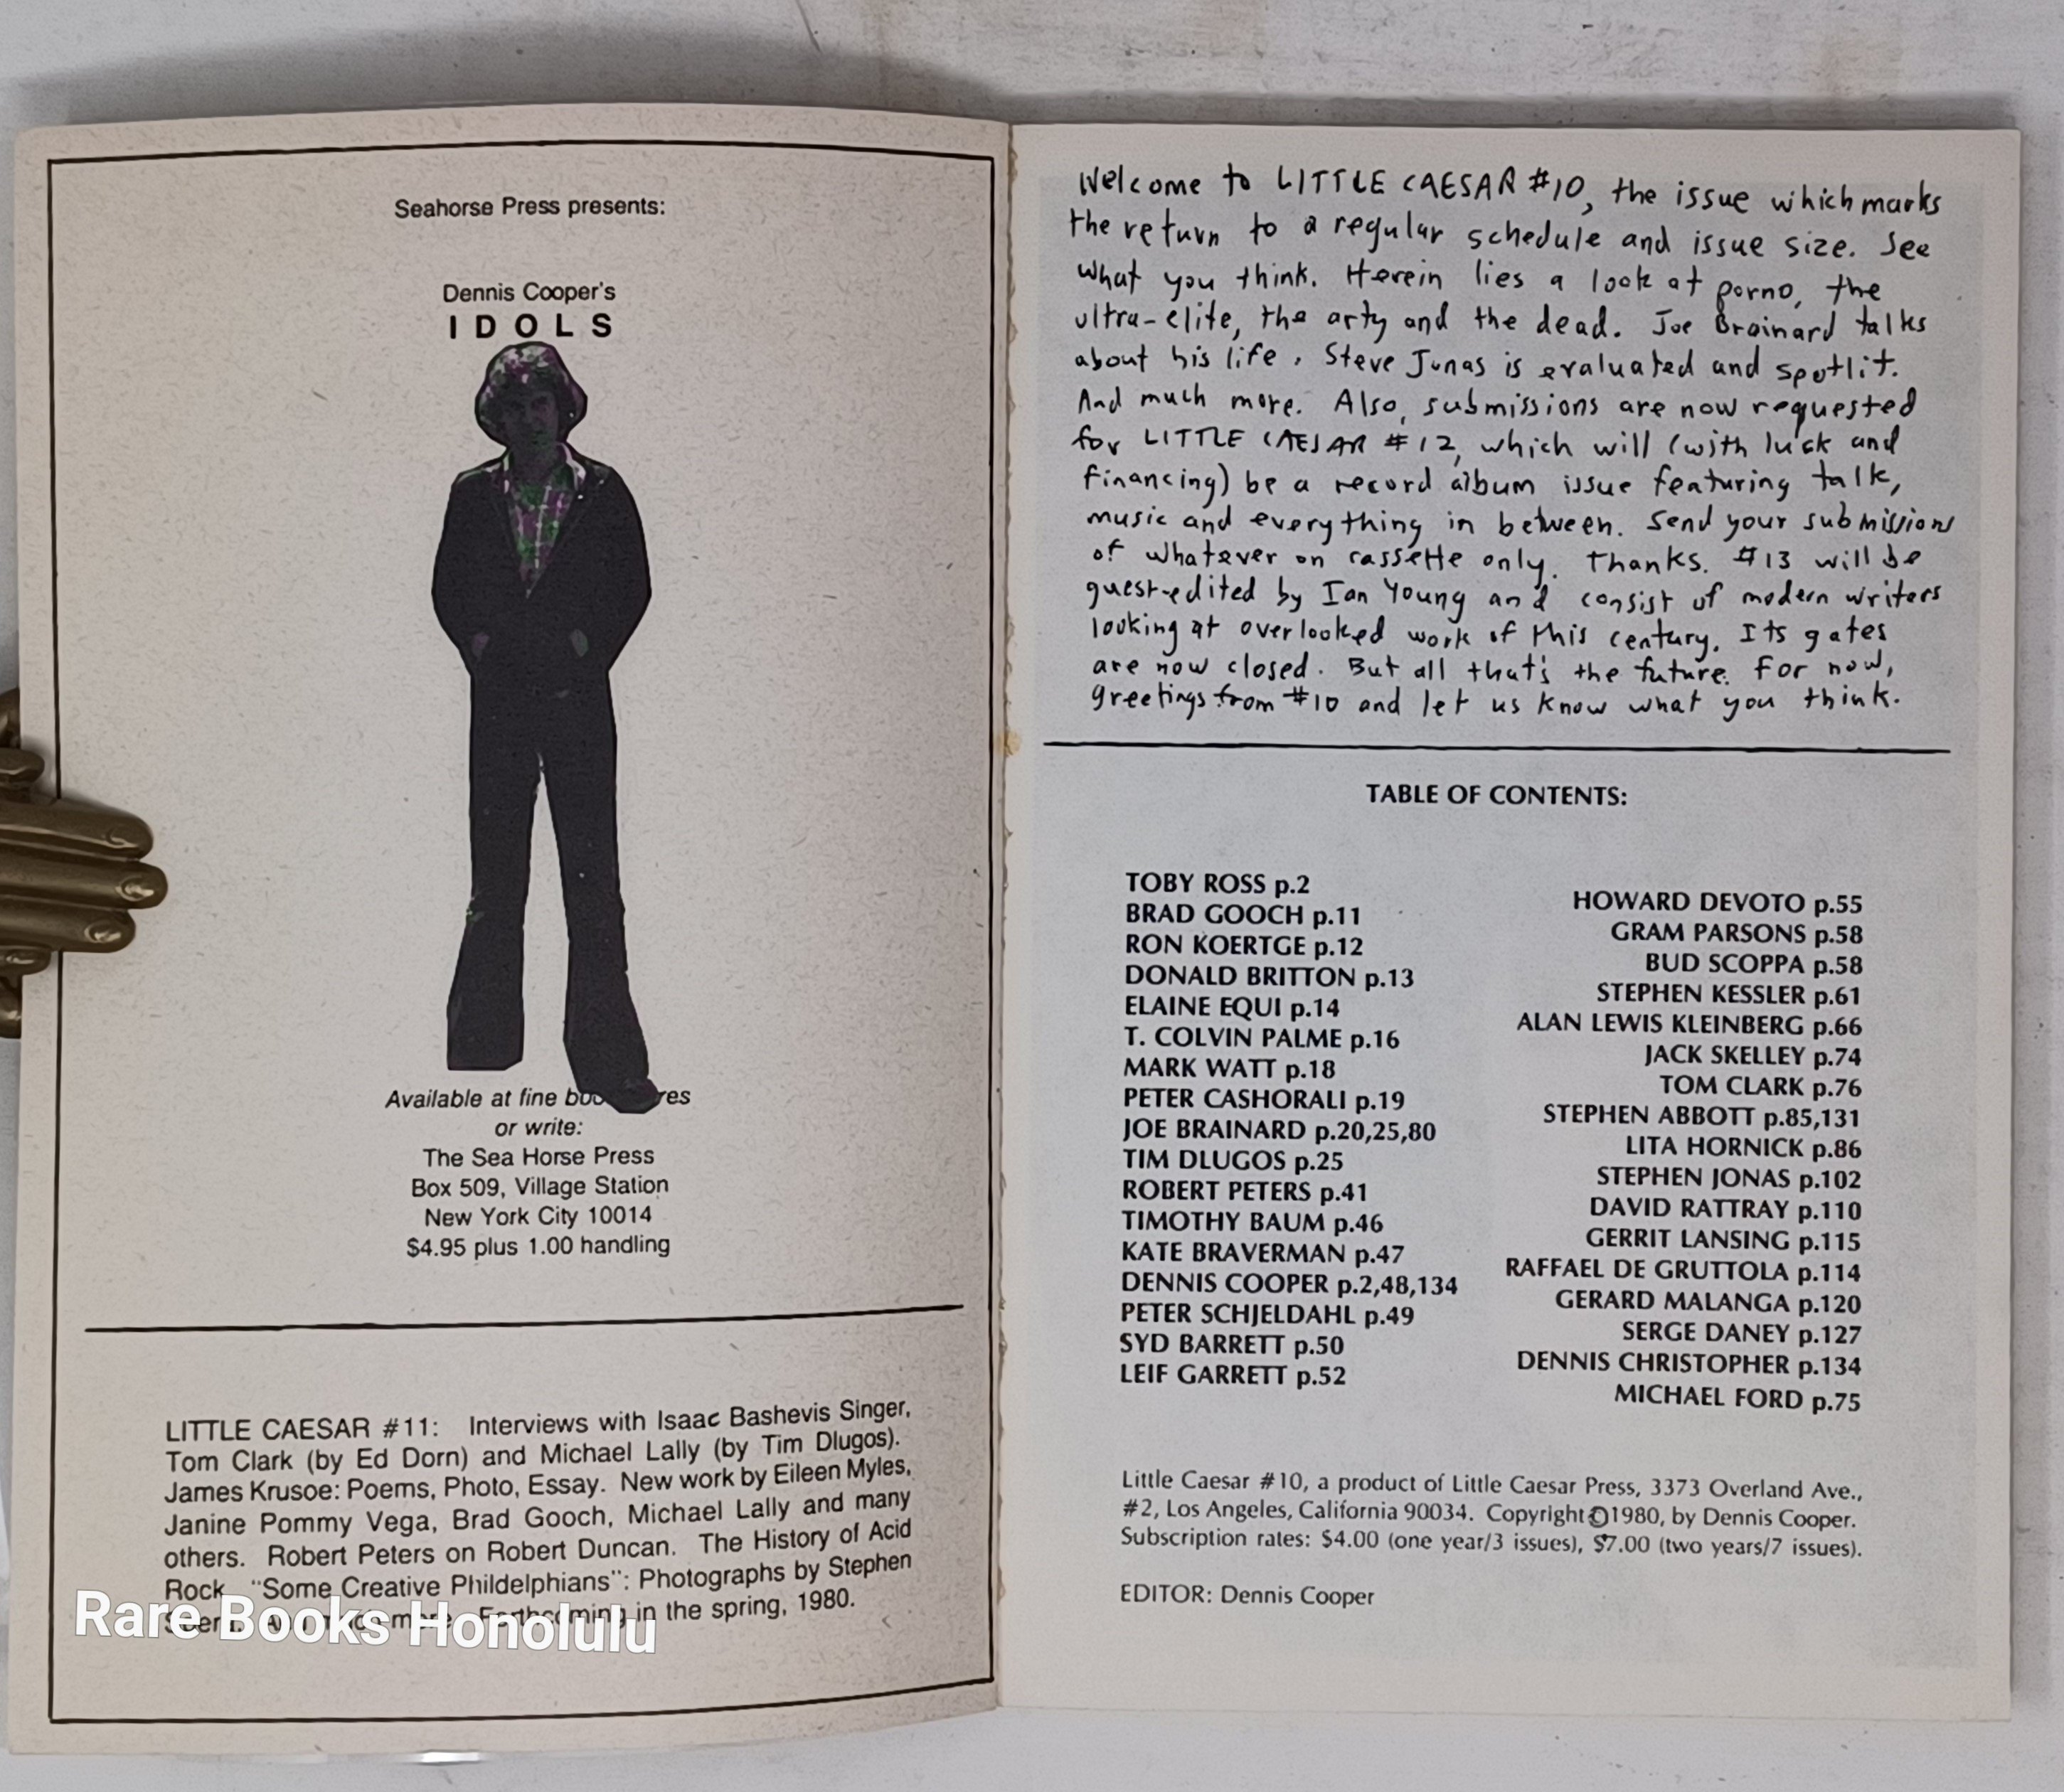 Seahorse Press presents:
Dennis Cooper's
IDOLS
Available at fine
or write:
The Sea Horse Press
Box 509, Village Station
New York City 10014
$4.95 plus 1.00 handling
LITTLE CAESAR #11: Interviews with Isaac Bashevis Singer,
Tom Clark (by Ed Dorn) and Michael Lally (by Tim Dlugos).
James Krusoe: Poems, Photo, Essay. New work by Eileen Myles,
Janine Pommy Vega, Brad Gooch, Michael Lally and many
others. Robert Peters on Robert Duncan. The History of Acid
Rock. "Some Creative Phildelphians": Photographs by Stephen
more. Forthcoming in the spring, 1980.
Rare Books Honolulu
Welcome to LITTLE CAESAR #10, the issue which marks
the return to a regular schedule and issue size. See
what you think. Herein lies a look at porno, the
ultra-elite, the arty and the dead. Joe Brainard talks
about his life. Steve Jonas is evaluated and spotlit.
And much more. Also, submissions are now requested
for LITTLE CAESAR #12, which will (with luck and
financing) be a record album issue featuring talk,
music and everything in between. Send your submissions
of whatever on cassette only. Thanks. #13 will be
guest-edited by Ian Young and consist of modern writers
looking at overlooked work of this century. Its gates
are now closed. But all that's the future. For now,
greetings from #10 and let us know what you think.
TABLE OF CONTENTS:
TOBY ROSS p.2
BRAD GOOCH p.11
RON KOERTGE p.12
DONALD BRITTON p.13
ELAINE EQUI p.14
T. COLVIN PALME p.16
MARK WATT p.18
PETER CASHORALI p.19
JOE BRAINARD p.20,25,80
TIM DLUGOS p.25
ROBERT PETERS p.41
TIMOTHY BAUM p.46
KATE BRAVERMAN p.47
DENNIS COOPER p.2,48,134
PETER SCHJELDAHL p.49
SYD BARRETT p.50
LEIF GARRETT p.52
HOWARD DEVOTO p.55
GRAM PARSONS p.58
BUD SCOPPA p.58
STEPHEN KESSLER p.61
ALAN LEWIS KLEINBERG p.66
JACK SKELLEY p.74
TOM CLARK p.76
STEPHEN ABBOTT p.85,131
LITA HORNICK p.86
STEPHEN JONAS p.102
DAVID RATTRAY p.110
GERRIT LANSING p.115
RAFFAEL DE GRUTTOLA p.114
GERARD MALANGA p.120
SERGE DANEY p.127
DENNIS CHRISTOPHER p.134
MICHAEL FORD p.75
Little Caesar #10, a product of Little Caesar Press, 3373 Overland Ave.,
#2, Los Angeles, California 90034. Copyright ©1980, by Dennis Cooper.
Subscription rates: $4.00 (one year/3 issues), $7.00 (two years/7 issues).
EDITOR: Dennis Cooper